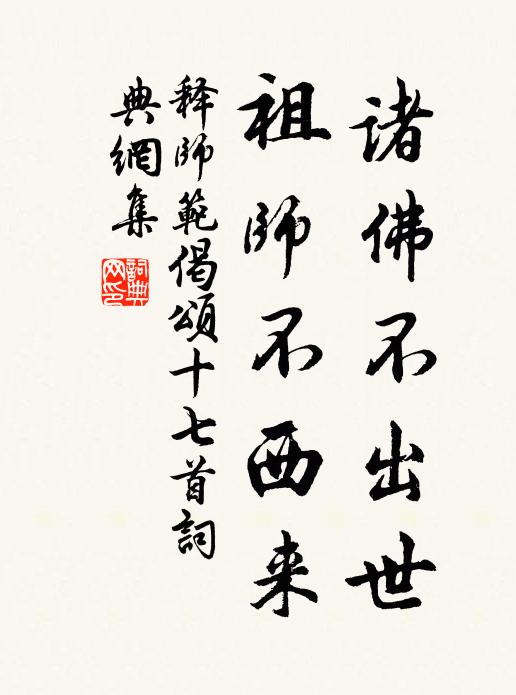 诸佛不出世
祖师不西来
释师範偈颂十七首詞
典網集
詞典网印